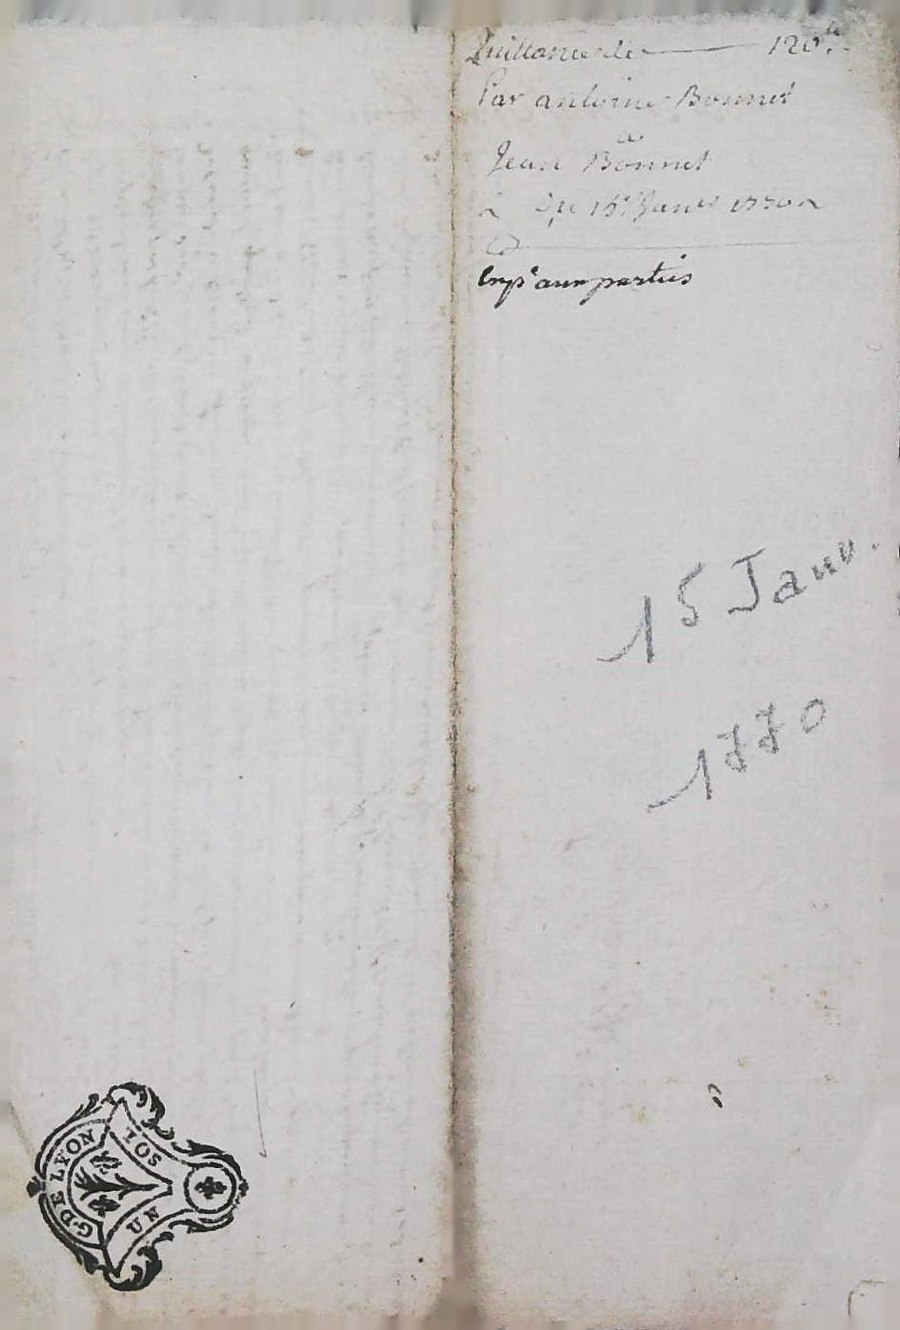 Quittance de 120#
Par antoine Bonnet
a
Jean Bonnet
Du 15e Janer 1770
Exp.e aux parties
15 Janv.
1770
G. DE LYON
UN
SOL